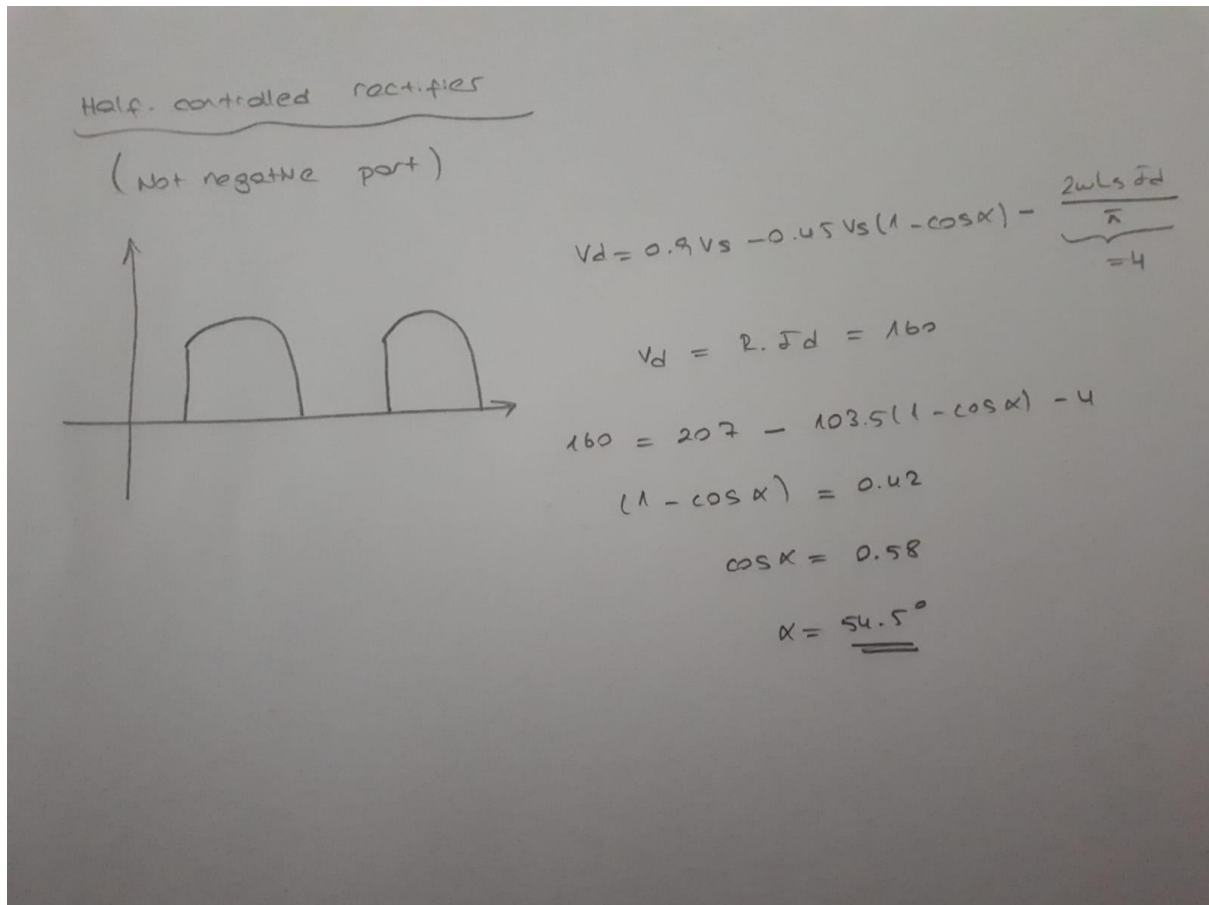 Half. controlled rectifier
(Not negative part)
Vd = 0.9 Vs - 0.45 Vs (1 - cosα) - 2wLs Id / π
= 4
Vd = R. Id = 160
160 = 207 - 103.5 (1 - cosα) - 4
(1 - cosα) = 0.42
cosα = 0.58
α = 54.5°